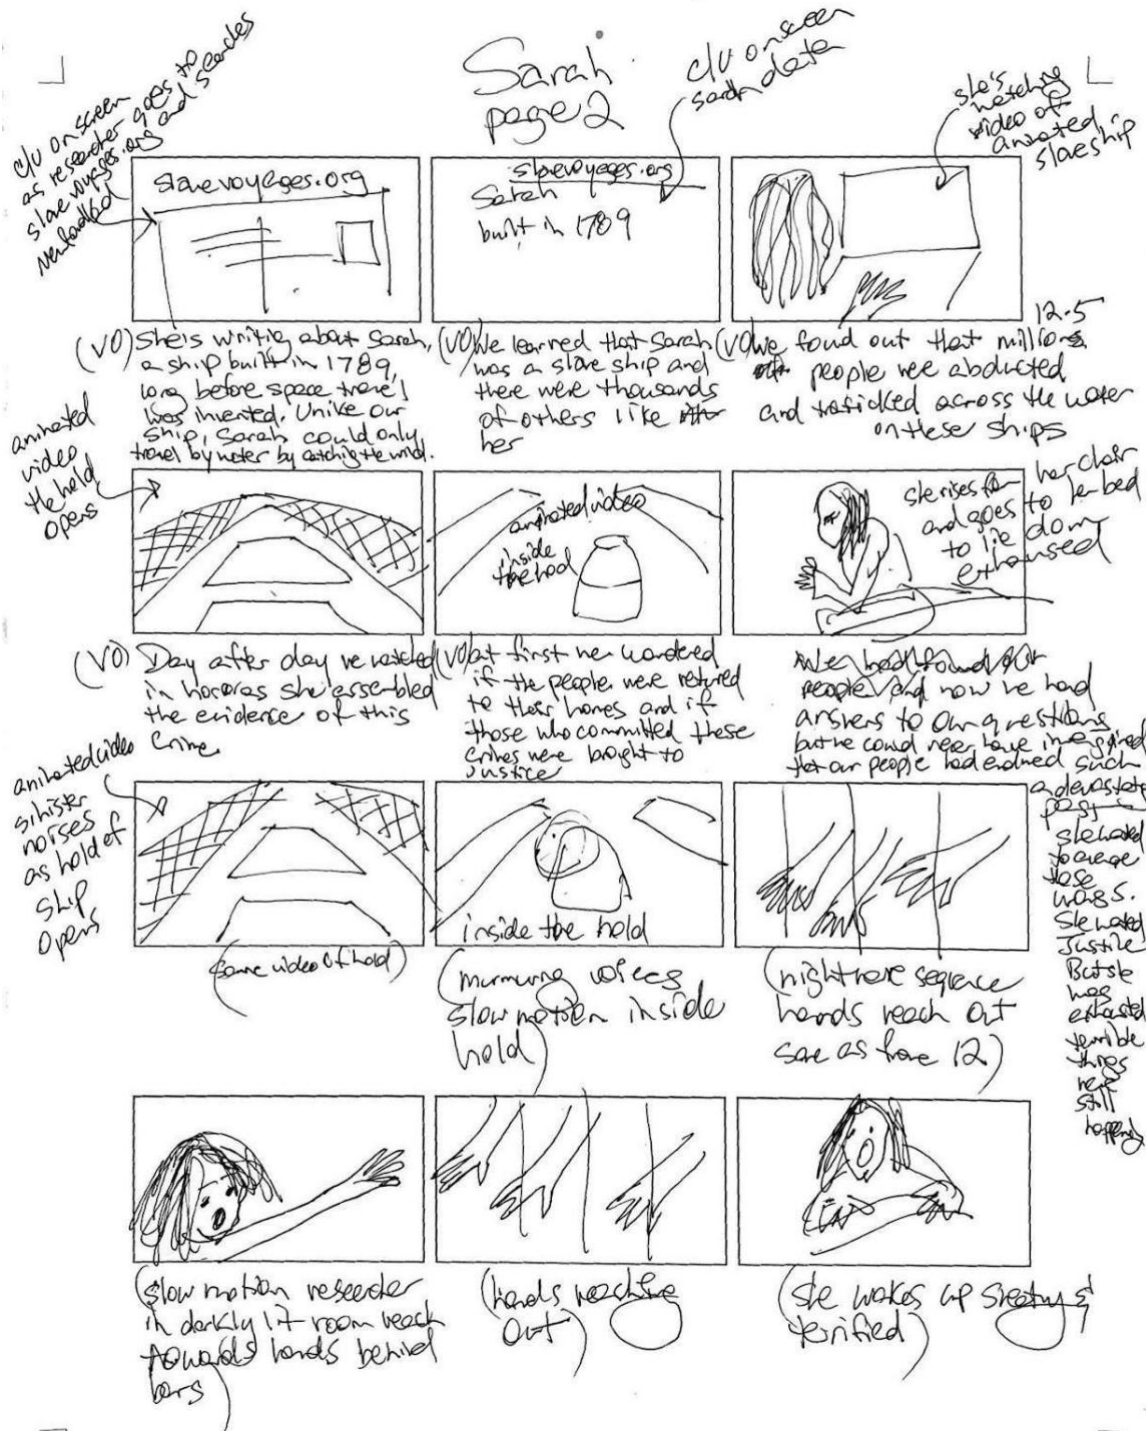 Sarah
page 2
c/u on screen
as researcher goes to
slavevoyages.org and searches
c/u on screen
sarah data
she's
watching
video of
animated
slaveship
slavevoyages.org
slavevoyages.org
Sarah
built in 1789
(VO) She is writing about Sarah,
a ship built in 1789,
long before space travel
was invented. Unlike our
ship, Sarah could only
travel by water by catching the wind.
(VO) We learned that Sarah
was a slave ship and
there were thousands
of others like
her
12.5
(VO) We found out that millions
people were abducted
and traficked across the water
on these ships
animated
video
the hold
opens
animated video
inside
the hold
she rises from her chair
and goes to her bed
to lie down
exhausted
(VO) Day after day we watched
in horror as she assembled
the evidence of this
crime
(VO) at first we wondered
if the people were returned
to their homes and if
those who committed these
crimes were brought to
justice
We had found our
people and now we had
answers to our questions
but we could never have imagined
that our people had endured such
a devastate
past
she wanted
to avenge
those
wrongs.
She wanted
Justice
But she
was
exhausted
terrible
things
were
still
happening
animated video
sinister
noises
as hold of
ship
opens
(same video of hold)
inside the hold
(murmuring voices
slow motion inside
hold)
(nightmare sequence
hands reach out
same as frame 12)
(slow motion researcher
in darkly lit room reach
towards hands behind
bars)
(hands reaching
out)
(she wakes up sweaty &
terrified)